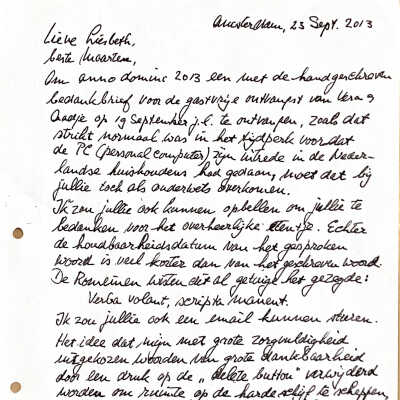 Amsterdam, 23 Sept. 2013
Lieve Liesbeth,
beste Maarten,
Om anno domini 2013 een met de hand geschreven
bedankbrief voor de gastvrije ontvangst van Vera &
op 19 September j.l. te ontvangen, zoals dat
strikt normaal was in het tijdperk voordat
de PC (personal computer) zijn intrede in de Neder-
landse huishoudens had gedaan, moet dat bij
jullie toch als ouderwets overkomen.
Ik zou jullie ook kunnen opbellen om jullie te
bedanken voor het overheerlijke etentje. Echter
de houdbaarheidsdatum van het gesproken
woord is veel korter dan van het geschreven woord.
De Romeinen wisten dit al getuige het gezegde:
Verba volant, scripta manent.
Ik zou jullie ook een email kunnen sturen.
Het idee dat mijn met grote zorgvuldigheid
uitgekozen woorden van grote dankbaarheid
door een druk op de „delete button" verwijderd
worden om ruimte op de harde schijf te scheppen,